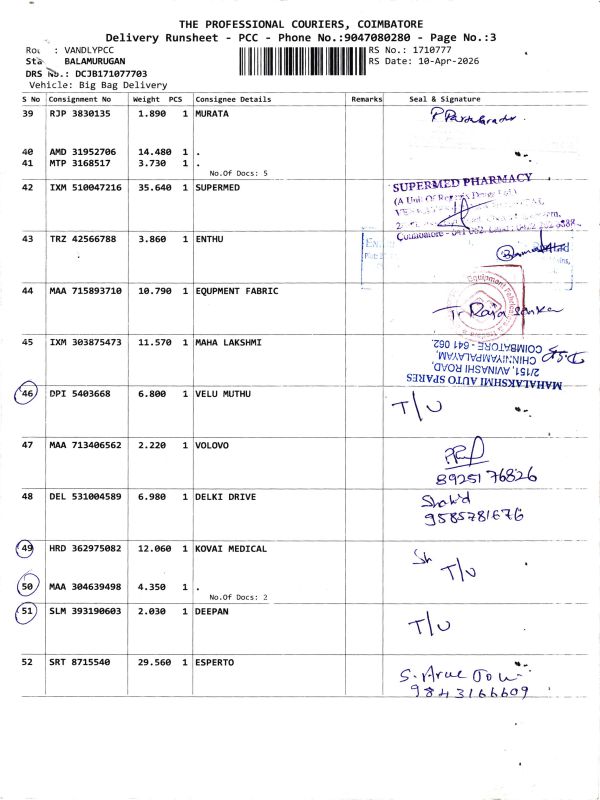 THE PROFESSIONAL COURIERS, COIMBATORE
Delivery Runsheet - PCC - Phone No.:9047080280 - Page No.:3
: VANDLYPCC RS No.: 1710777
BALAMURUGAN RS Date: 10-Apr-2026
DRS No.: DCJB171077703
Vehicle: Big Bag Delivery
S No Consignment No Weight PCS Consignee Details Remarks Seal & Signature
39 RJP 3830135 1.890 1 MURATA
40 AMD 31952706 14.480 1 .
41 MTP 3168517 3.730 1 .
No.Of Docs: 5
42 IXM 510047216 35.640 1 SUPERMED
SUPERMED PHARMACY
43 TRZ 42566788 3.860 1 ENTHU
44 MAA 715893710 10.790 1 EQUPMENT FABRIC
Equipment Fabric
45 IXM 303875473 11.570 1 MAHA LAKSHMI
MAHALAKSHMI AUTO SPARES
2/151, AVINASHI ROAD,
CHINNIYAMPALAYAM,
COIMBATORE - 641 062.
46 DPI 5403668 6.800 1 VELU MUTHU T/U
47 MAA 713406562 2.220 1 VOLOVO
8925176826
48 DEL 531004589 6.980 1 DELKI DRIVE
9585781676
49 HRD 362975082 12.060 1 KOVAI MEDICAL
Sh T/U
50 MAA 304639498 4.350 1 .
No.Of Docs: 2
51 SLM 393190603 2.030 1 DEEPAN T/U
52 SRT 8715540 29.560 1 ESPERTO
9843166609